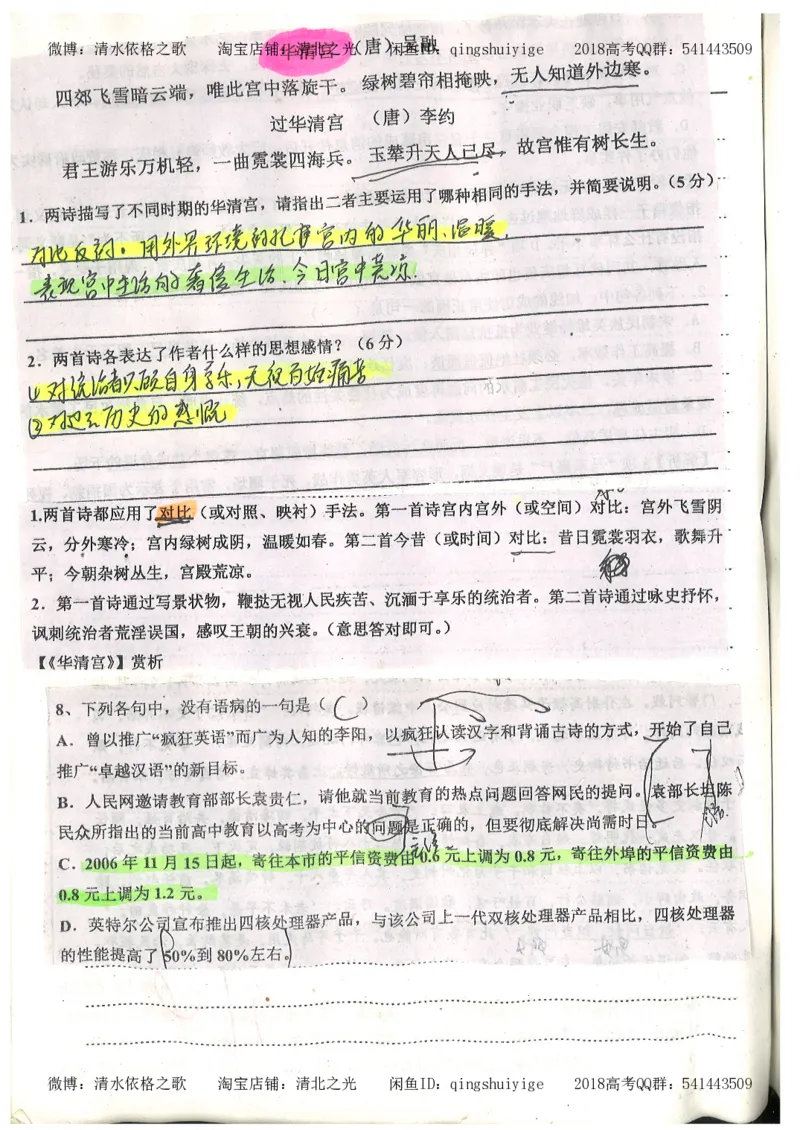 微博：清水依格之歌 淘宝店铺：清北之光 闲鱼ID：qingshuiyige 2018高考QQ群：541443509
华清宫 （唐）吴融
四郊飞雪暗云端，唯此宫中落旋干。绿树碧帘相掩映，无人知道外边寒。
过华清宫 （唐）李约
君王游乐万机轻，一曲霓裳四海兵。玉辇升天人已尽，故宫惟有树长生。
1．两诗描写了不同时期的华清宫，请指出二者主要运用了哪种相同的手法，并简要说明。（5分）
对比反衬。用外界环境的 宫内的华丽、温暖
表现宫中生活的奢侈生活、今日宫中荒凉
2．两首诗各表达了作者什么样的思想感情？（6分）
①对统治者只顾自身享乐，无视百姓痛苦
②对 历史的感慨
1.两首诗都应用了对比（或对照、映衬）手法。第一首诗宫内宫外（或空间）对比：宫外飞雪阴
云，分外寒冷；宫内绿树成阴，温暖如春。第二首今昔（或时间）对比：昔日霓裳羽衣，歌舞升
平；今朝杂树丛生，宫殿荒凉。
2．第一首诗通过写景状物，鞭挞无视人民疾苦、沉湎于享乐的统治者。第二首诗通过咏史抒怀，
讽刺统治者荒淫误国，感叹王朝的兴衰。（意思答对即可。）
【《华清宫》】赏析
8、下列各句中，没有语病的一句是（ C ）
A．曾以推广“疯狂英语”而广为人知的李阳，以疯狂认读汉字和背诵古诗的方式，开始了自己
推广“卓越汉语”的新目标。
B．人民网邀请教育部部长袁贵仁，请他就当前教育的热点问题回答网民的提问。袁部长坦陈
民众所指出的当前高中教育以高考为中心的问题是正确的，但要彻底解决尚需时日。
C．2006年11月15日起，寄往本市的平信资费由0.6元上调为0.8元，寄往外埠的平信资费由
0.8元上调为1.2元。
D．英特尔公司宣布推出四核处理器产品，与该公司上一代双核处理器产品相比，四核处理器
的性能提高了50%到80%左右。
微博：清水依格之歌 淘宝店铺：清北之光 闲鱼ID：qingshuiyige 2018高考QQ群：541443509